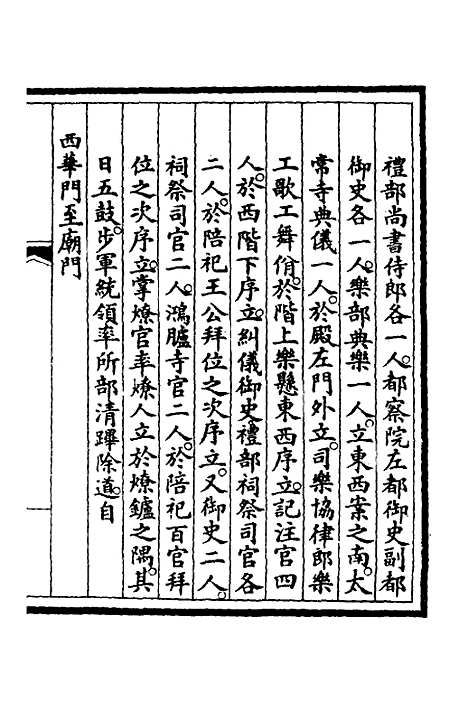 禮部尚書侍郎各一人。都察院左都御史副都
御史各一人。樂部典樂一人。立東西案之南。太
常寺典儀一人。於殿左門外立。司樂協律郎樂
工歌工舞佾。於階上樂懸東西序立。記注官四
人。於西階下序立。糾儀御史禮部祠祭司官各
二人。於陪祀王公拜位之次序立。又御史二人。
祠祭司官二人。鴻臚寺官二人。於陪祀百官拜
位之次序立。掌燎官率燎人立於燎鑪之隅。其
日五鼓。步軍統領率所部清蹕除道。自
西華門至廟門